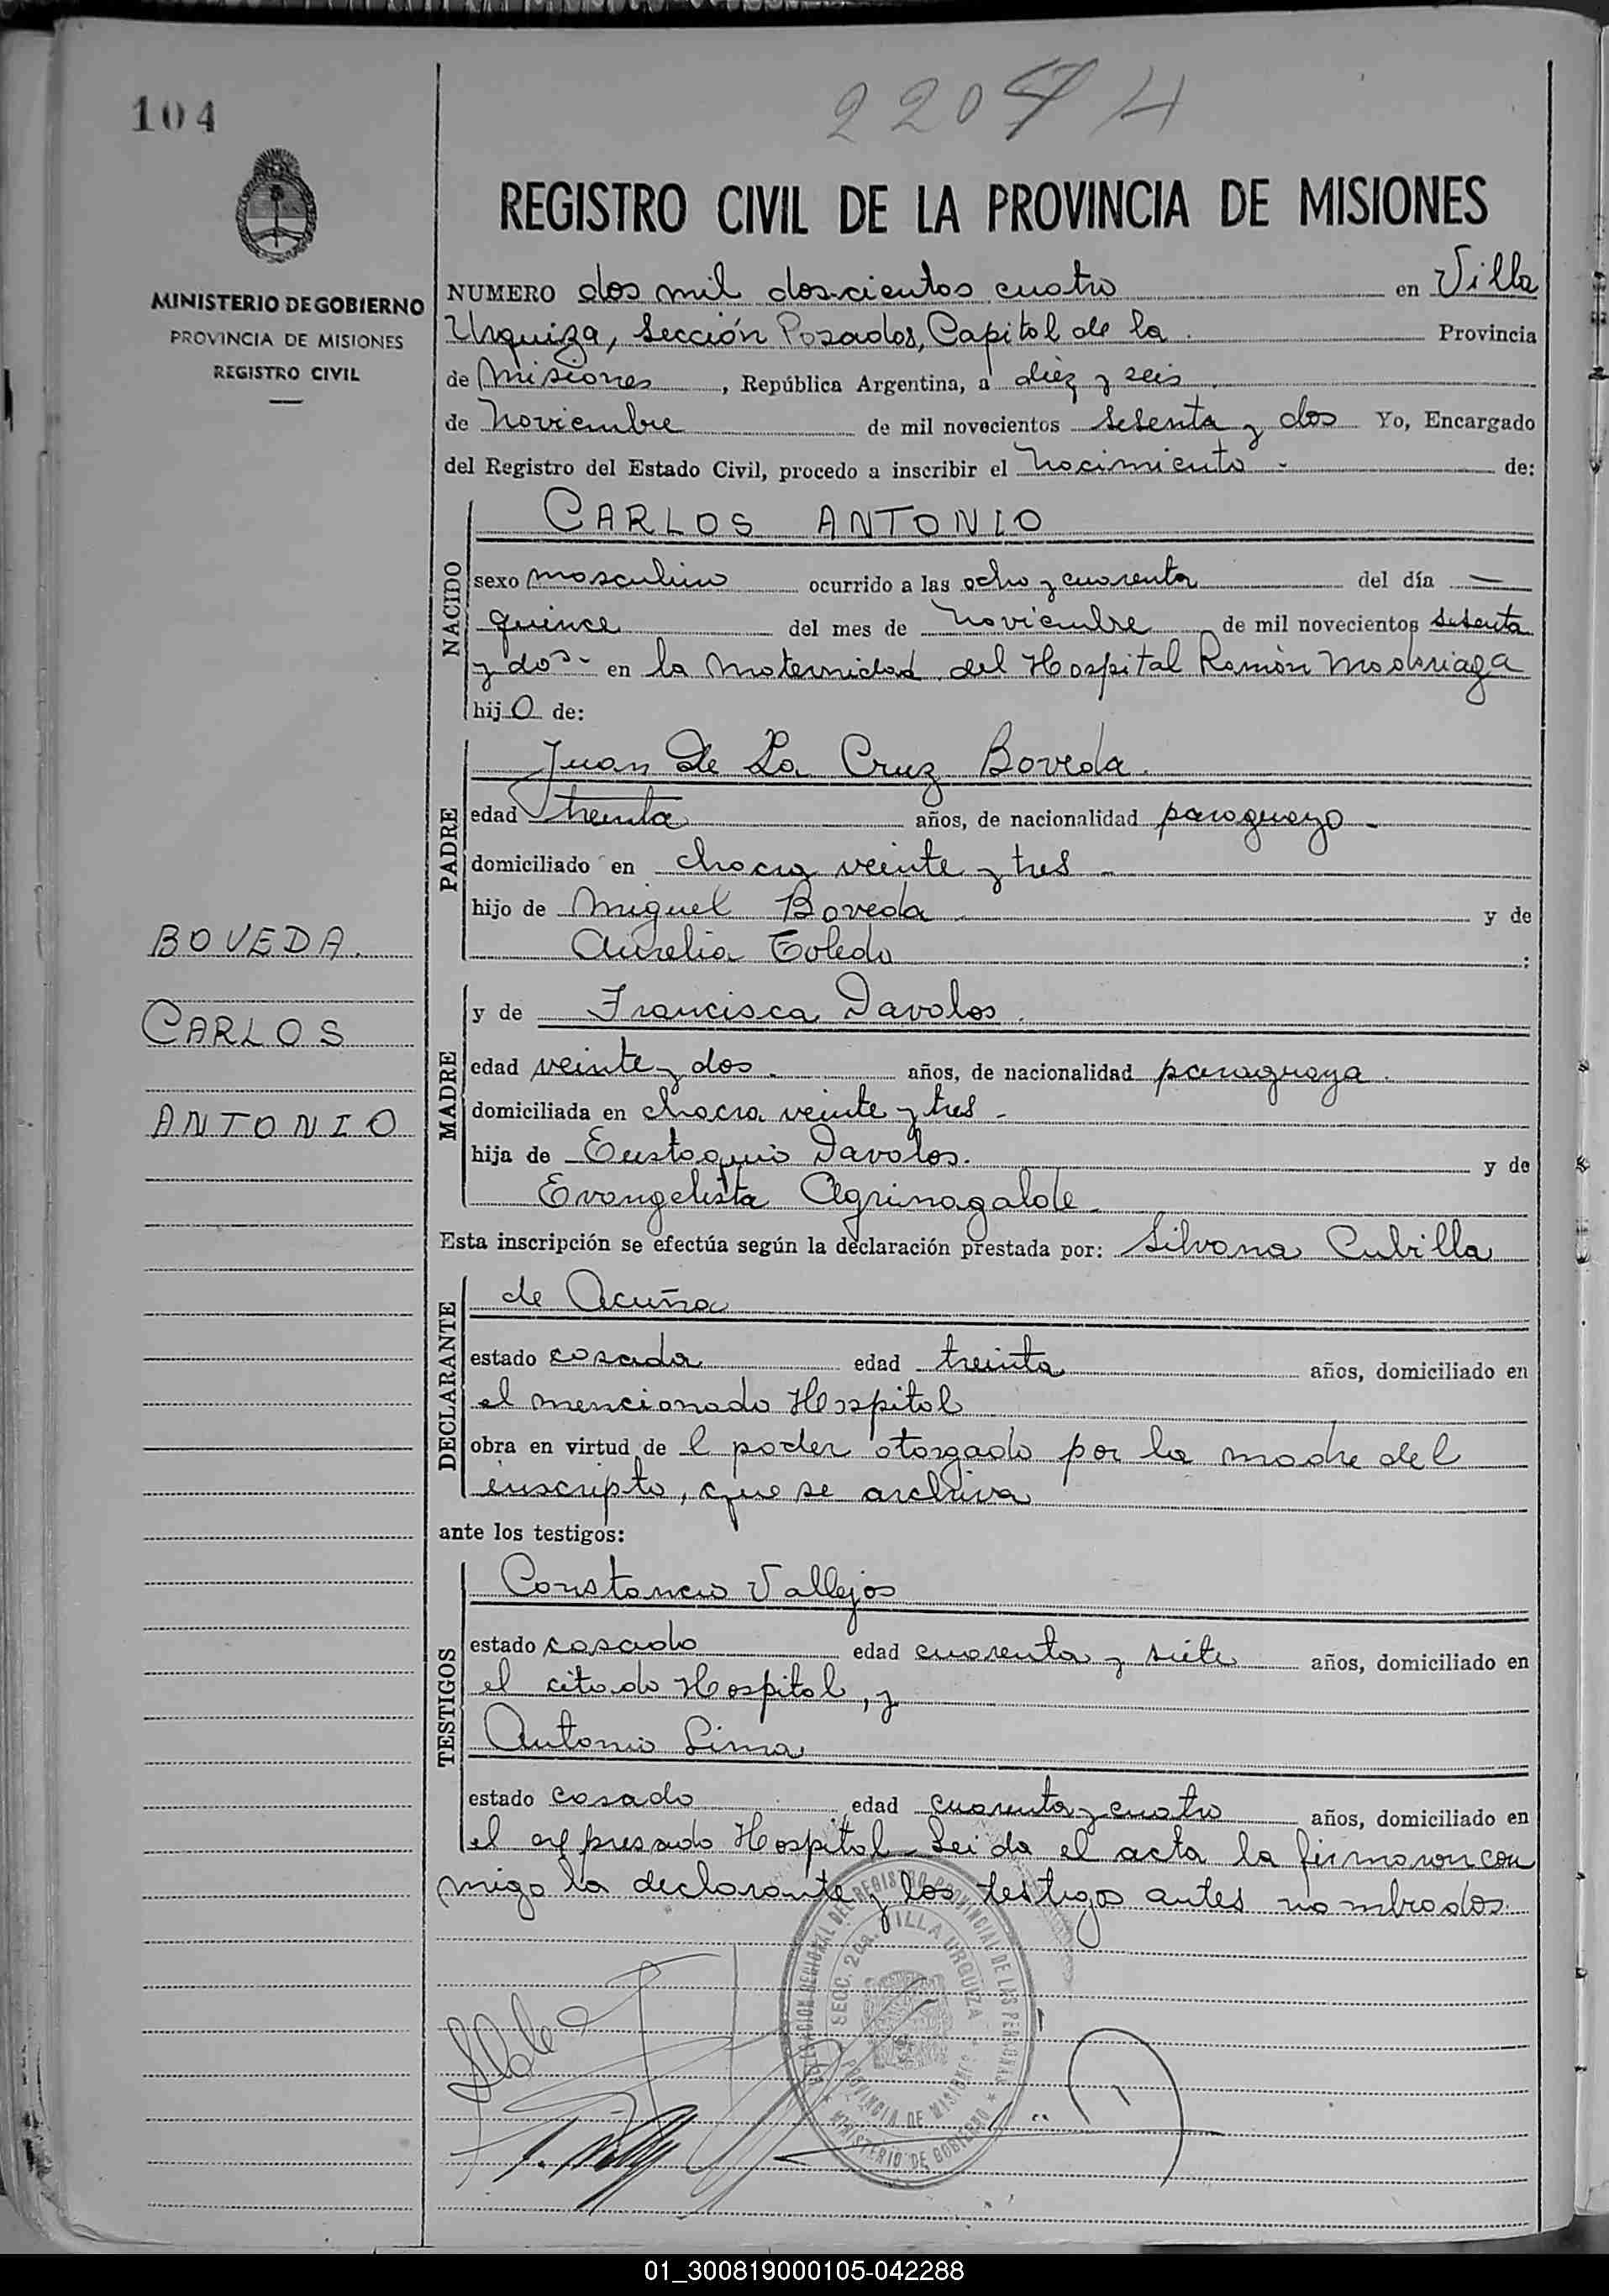 104
2204 H
REGISTRO CIVIL DE LA PROVINCIA DE MISIONES
MINISTERIO DE GOBIERNO
PROVINCIA DE MISIONES
REGISTRO CIVIL
NUMERO dos mil doscientos cuatro en Villa
Urquiza, Sección Posadas, Capital de la Provincia
de Misiones, República Argentina, a diez y seis
de Noviembre de mil novecientos sesenta y dos Yo, Encargado
del Registro del Estado Civil, procedo a inscribir el Nacimiento - de:
NACIDO
CARLOS ANTONIO
sexo masculino ocurrido a las ocho y cuarenta del día —
quince del mes de Noviembre de mil novecientos sesenta
y dos - en la Maternidad del Hospital Ramón Madariaga
hijo de:
PADRE
Juan De La Cruz Boveda.
edad treinta años, de nacionalidad paraguayo -
domiciliado en chacra veinte y tres -
hijo de Miguel Boveda y de
Aurelia Toledo :
BOVEDA.
CARLOS
ANTONIO
MADRE
y de Francisca Davalos.
edad veinte y dos - años, de nacionalidad paraguaya.
domiciliada en chacra veinte y tres -
hija de Eustaquio Davalos. y de
Evangelista Agrinagalde -
Esta inscripción se efectúa según la declaración prestada por: Silvana Cubilla
DECLARANTE
de Acuña
estado casada edad treinta años, domiciliado en
el mencionado Hospital
obra en virtud de l poder otorgado por la madre del
inscripto, que se archiva
ante los testigos:
TESTIGOS
Constancio Vallejos
estado casado edad cuarenta y siete años, domiciliado en
el citado Hospital, y
Antonio Lima
estado casado edad cuarenta y cuatro años, domiciliado en
el expresado Hospital - Leida el acta la firmaron con
migo la declarante y los testigos antes nombrados.
DELEGACION REGIONAL DEL REGISTRO PROVINCIAL DE LAS PERSONAS
SECC. 2da. VILLA URQUIZA
PROVINCIA DE MISIONES
MINISTERIO DE GOBIERNO
01_300819000105-042288